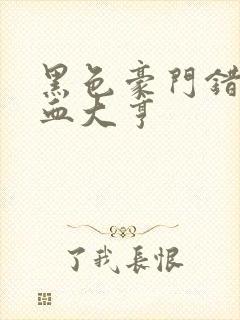 黑色豪門錯
血大亨
了我長恨